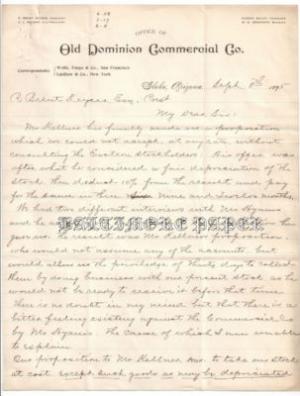 OFFICE OF
Old Dominion Commercial Co.
Correspondents: Wells, Fargo & Co., San Francisco
Globe, Arizona Sept 8th 1895
P. Brent Keyser Esq. Prest
My Dear Sir:
Mr Kellner has finally made us a proposition
which we could not accept, at any rate without
consulting the Eastern Stockholders. His offer was
after what he considered a fair depreciation of the
Stock, then deduct 10% from the result and pay
for the same in three, Nine and Twelve months.
We had two different interviews with
BALTIMORE PAPER
result was Mr Kellner's proposition
who would not assume any of the accounts, but
would allow us the privilege of thirty days to collect
them by doing business with our present stock as he
would not be ready to receive it before that time.
There is no doubt in my mind but that there is a
bitter feeling existing against the Commercial Co
by Mr The cause of which I am unable
to explain.
Our proposition to Mr Kellner was to take our stock
at cost except such goods as may be depreciated